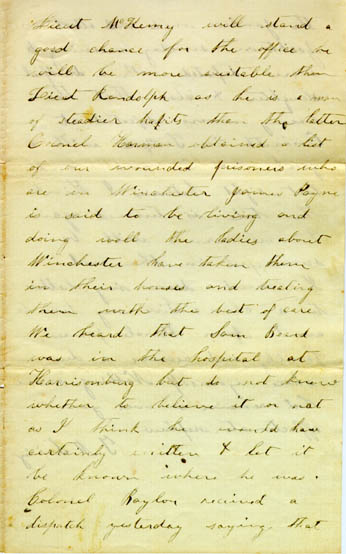 Lieut McKemy will stand a
good chance for the office he
will be more suitable than
Lieut Randolph as he is a man
of steadier habits than the latter
Cronel Harman obtained a list
of our wounded prisoners who
are in Winchester James Payne
is said to be living and
doing well the ladies about
Winchester have taken them
in their houses and treating
them with the best of care
We heard that Sam Beard
was in the hospital at
Harrisonburg but do not know
whether to believe it or not
as I think he would have
certainly written & let it
be known where he was.
Colonel Baylor recieved a
dispatch yesterday saying that